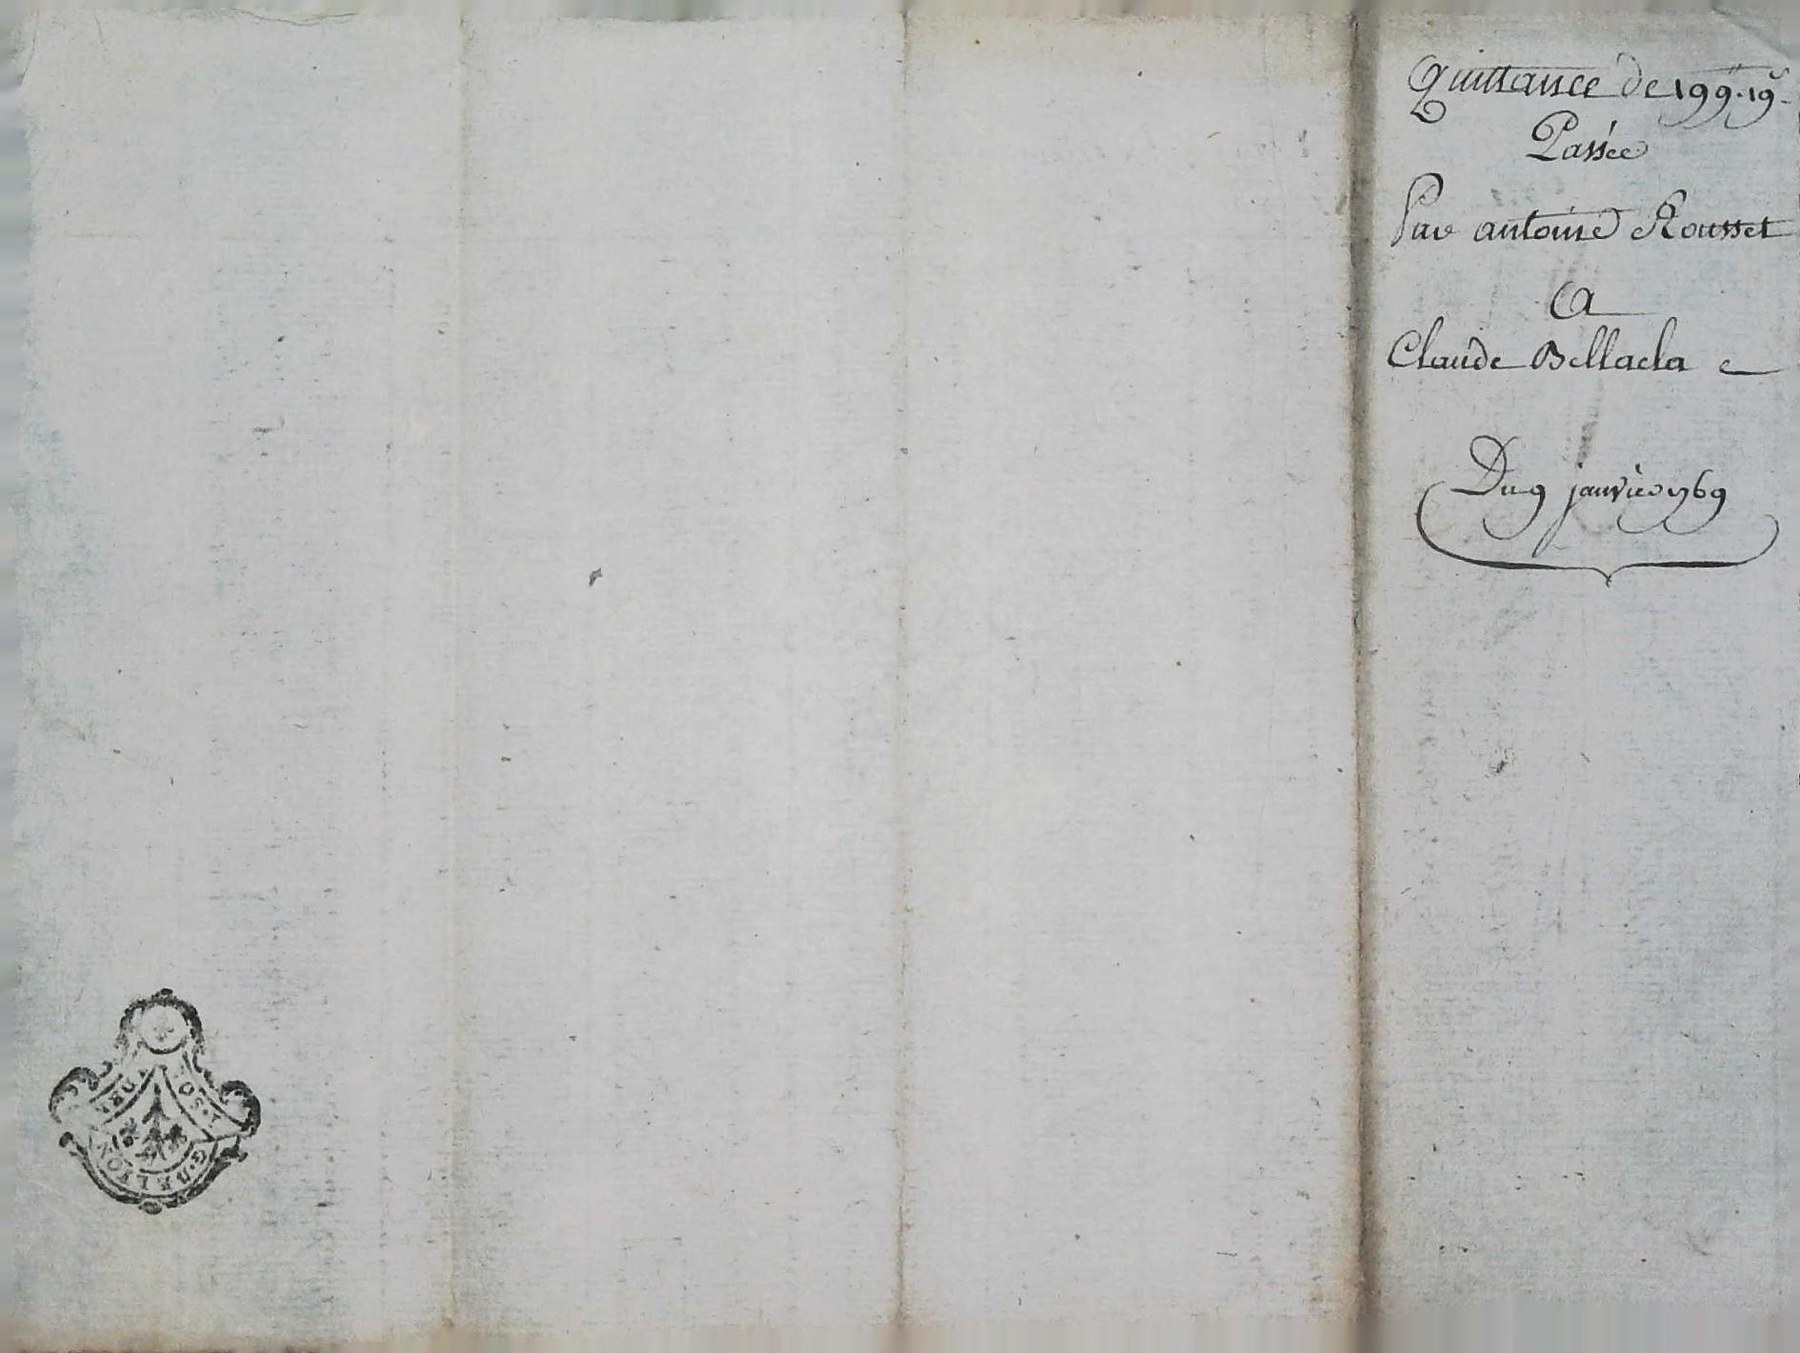 Quittance de 199 lt. 19 s.
Passée
Par antoine Rousset
A
Claude Bellacla
Du 9 janvier 1769
G. DE LYON